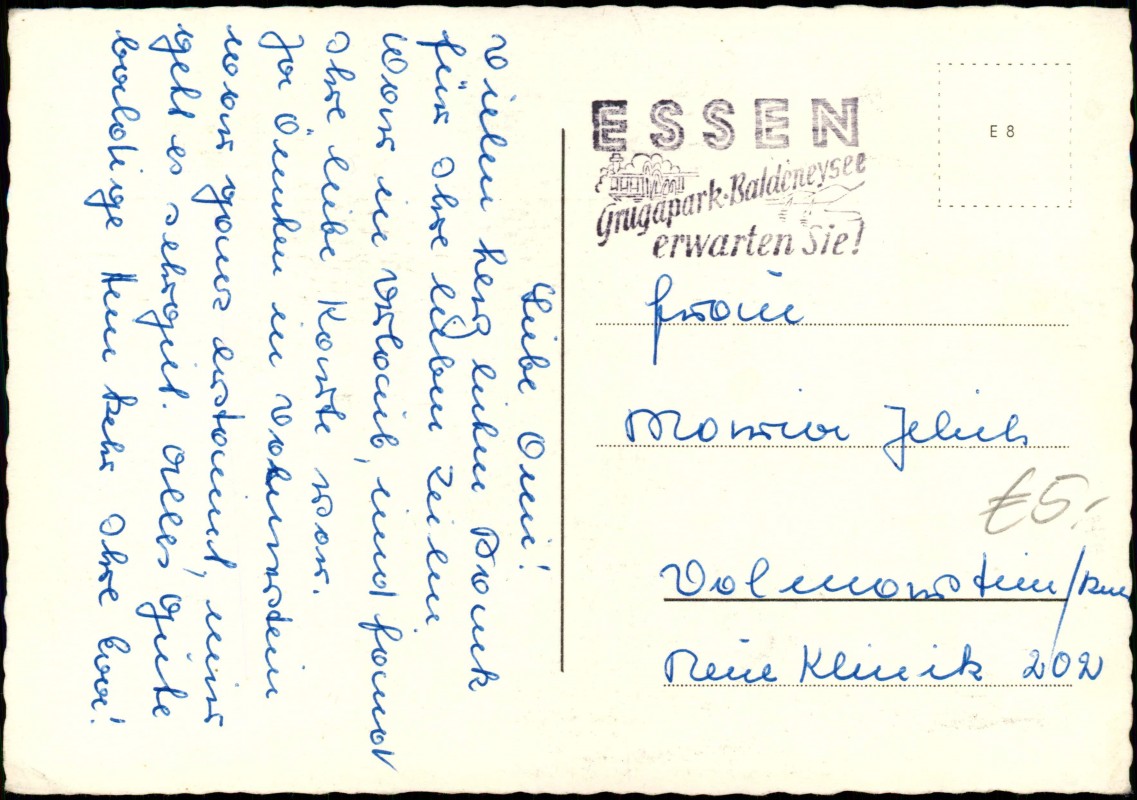 Liebe Omi!
Vielen herzlichen Dank
für Ihre lieben Zeilen
War in Urlaub, und fand
Ihre liebe Karte vor.
Ja in Volmarstein
war ganz erstaunt, mir
geht es sehrgut. Alles gute
baldige Heim kehr Ihre Eva!
ESSEN
Grugapark-Baldeneysee
erwarten Sie!
E 8
Frau
Maria Jelich
€5.-
Volmarstein/Ruhr
Neue Klinik 202